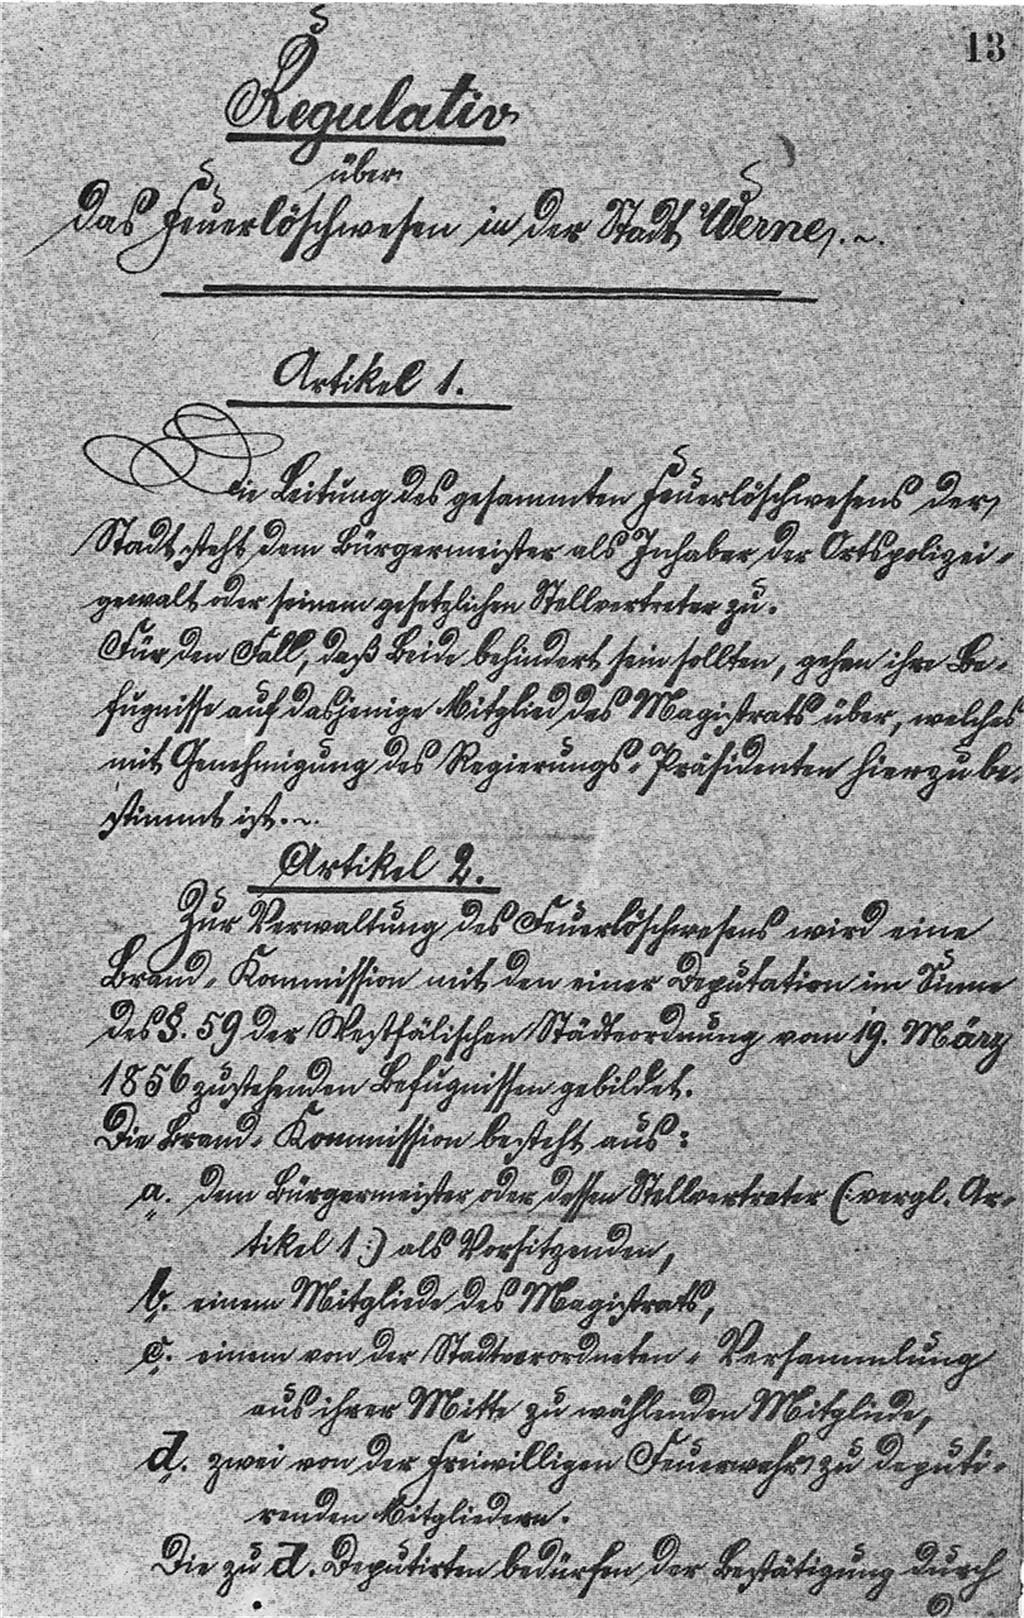 13
Regulativ
über
das Feuerlöschwesen in der Stadt Werne.
Artikel 1.
Die Leitung des gesammten Feuerlöschwesens der
Stadt steht dem Bürgermeister als Inhaber der Ortspolizei-
gewalt oder seinem gesetzlichen Stellvertreter zu.
Für den Fall, daß Beide behindert sein sollten, gehen ihre Be-
fugnisse auf dasjenige Mitglied des Magistrats über, welches
mit Genehmigung des Regierungs-Präsidenten hierzu be-
stimmt ist.
Artikel 2.
Zur Verwaltung des Feuerlöschwesens wird eine
Brand-Kommission mit den einer Deputation im Sinne
des §. 59 der Westfälischen Städteordnung vom 19. März
1856 zustehenden Befugnissen gebildet.
Die Brand-Kommission besteht aus:
a. dem Bürgermeister oder dessen Stellvertreter (:vergl. Ar-
tikel 1:) als Vorsitzenden,
b. einem Mitgliede des Magistrats,
c. einem von der Stadtverordneten-Versammlung
aus ihrer Mitte zu wählenden Mitgliede,
d. zwei von der freiwilligen Feuerwehr zu deputi-
renden Mitgliedern.
Die zu d. Deputirten bedürfen der Bestätigung durch